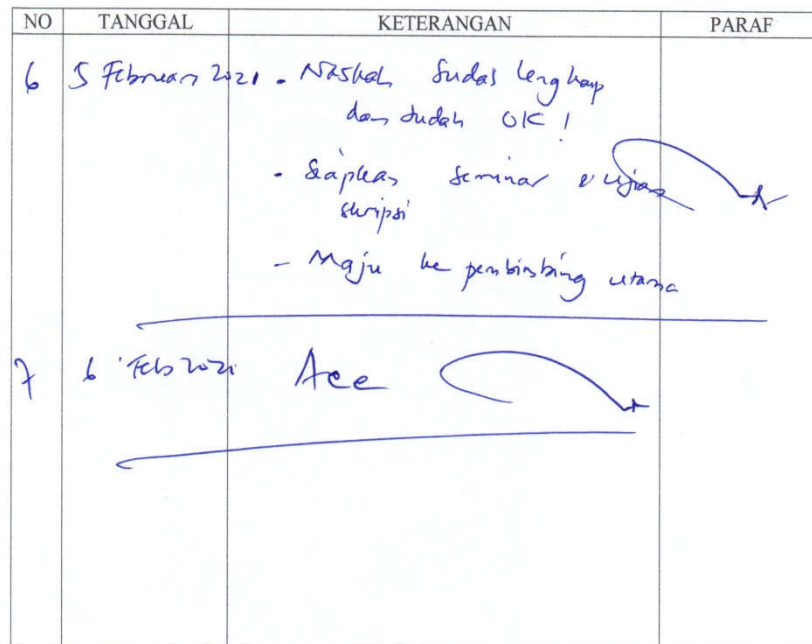 NO TANGGAL KETERANGAN PARAF
6 5 Februari 2021 - Naskah sudah lengkap
dan sudah OK !
- Siapkan seminar & ujian
skripsi
- Maju ke pembimbing utama
7 6 Feb 2021 Acc